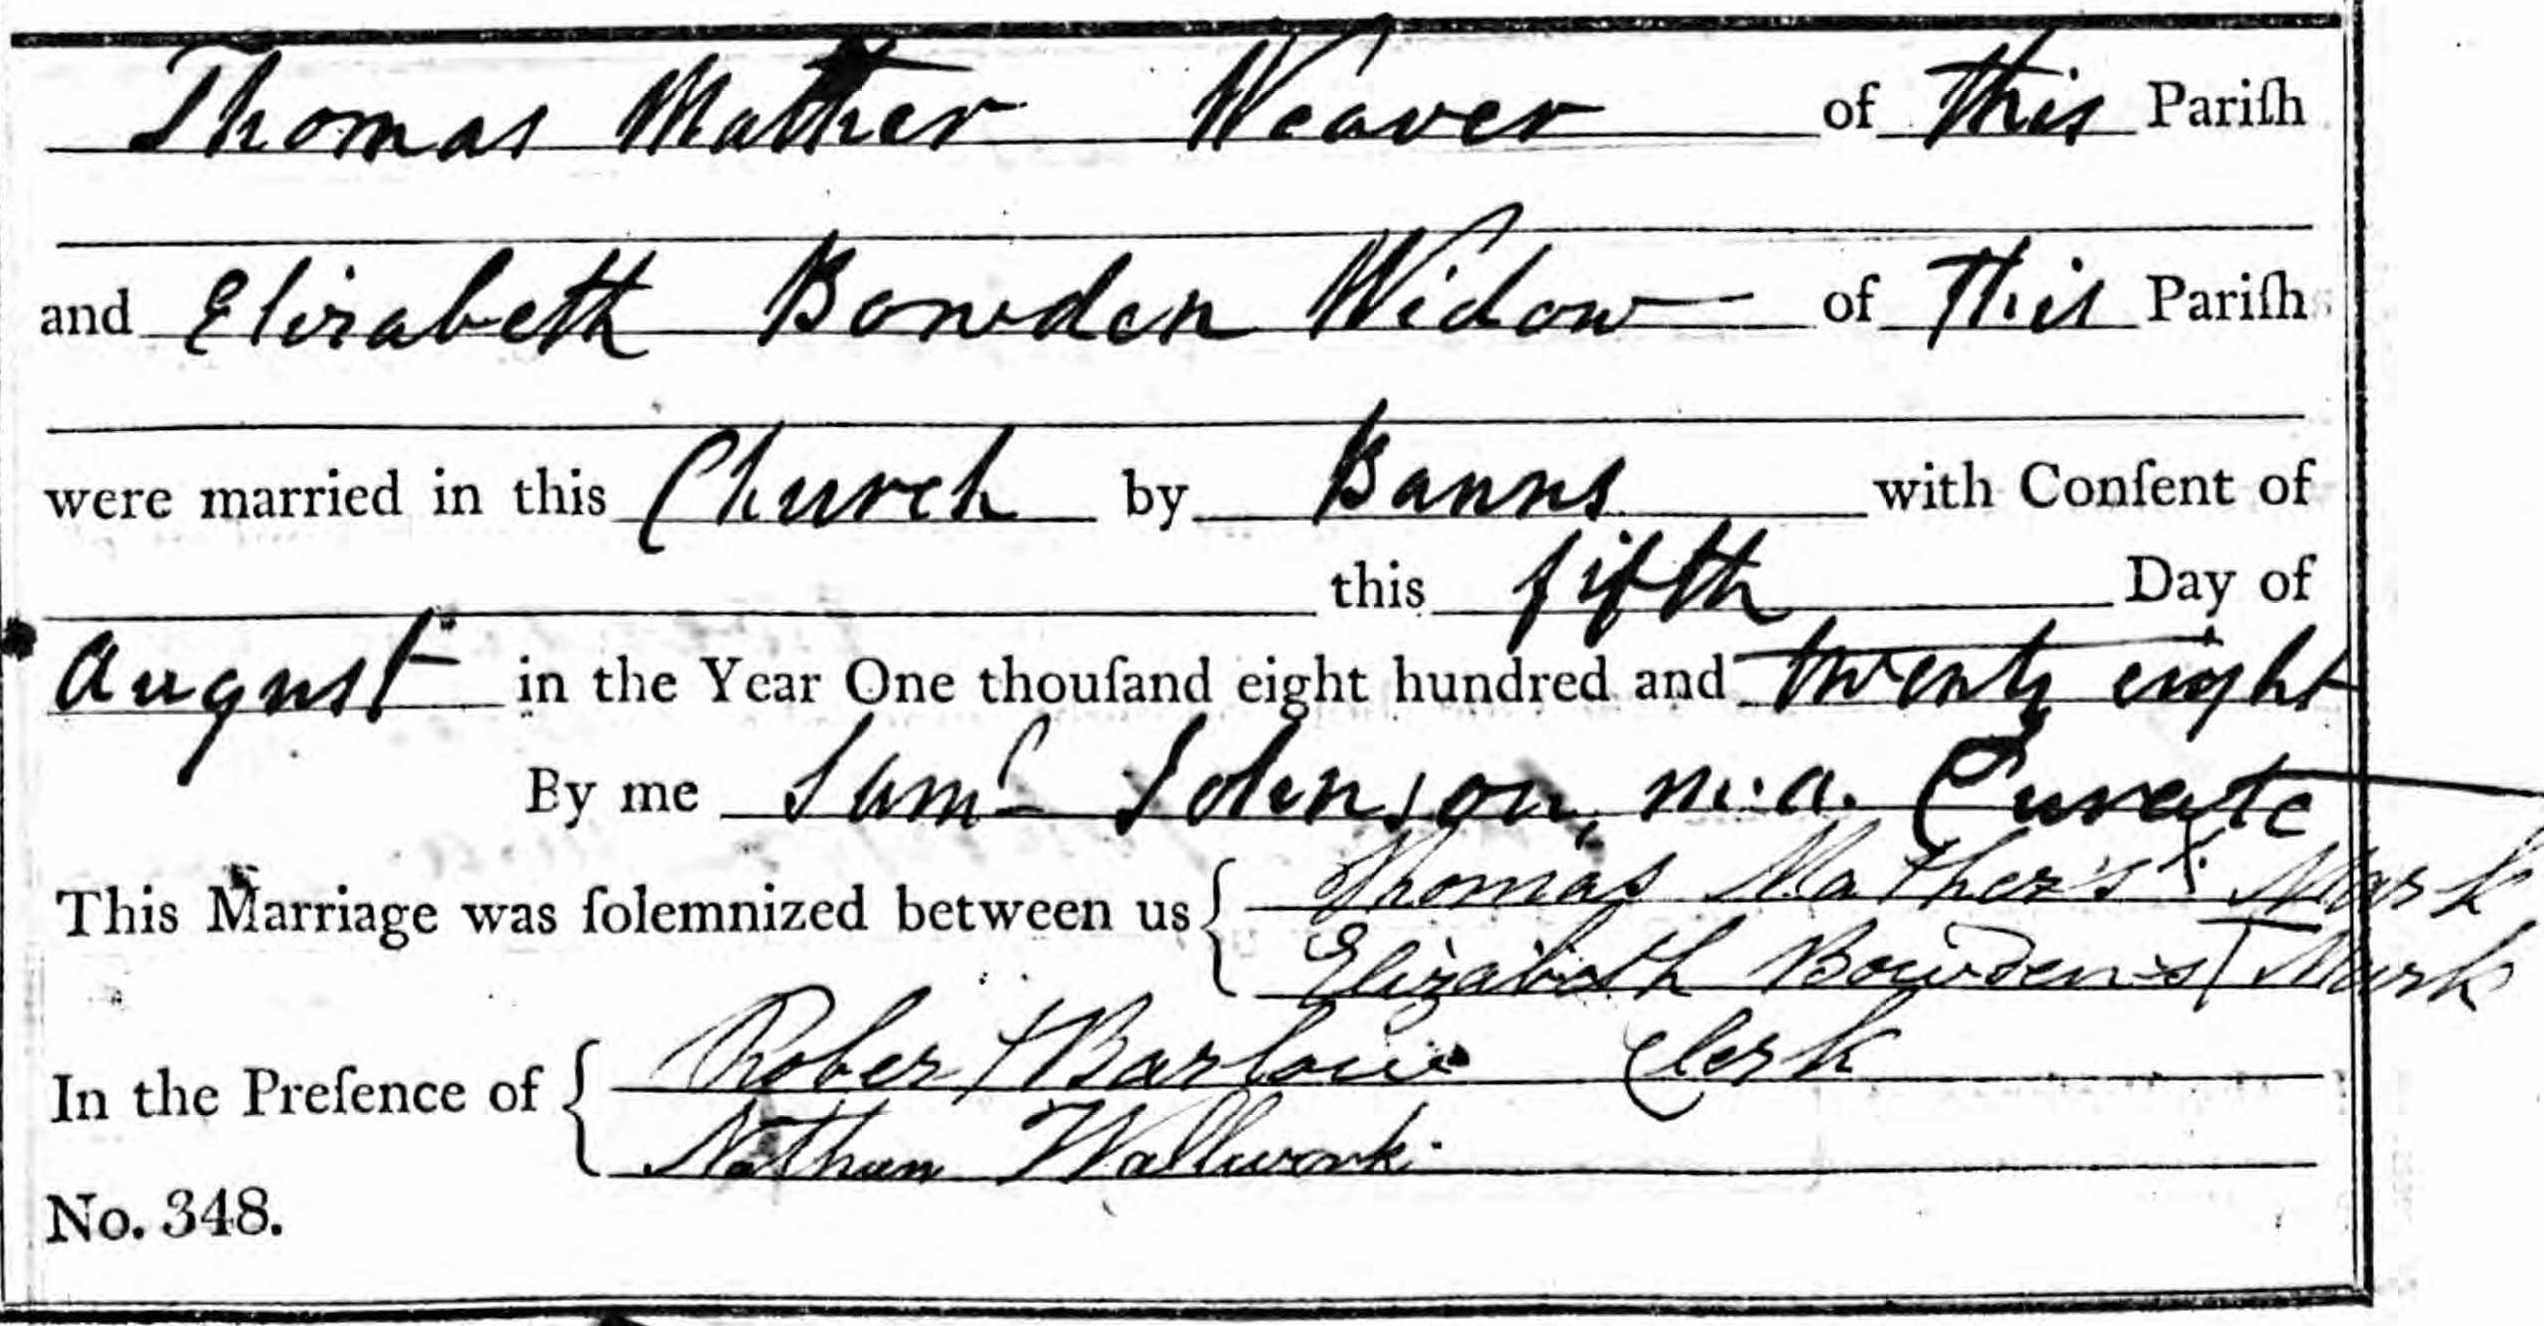 Thomas Mather Weaver of this Pariſh
and Elizabeth Bowden Widow of this Pariſh
were married in this Church by Banns with Conſent of
this fifth Day of
August in the Year One thouſand eight hundred and twenty eight
By me Saml Johnson, m.a. Curate
This Marriage was ſolemnized between us { Thomas Mather's X Mark
Elizabeth Bowden's T Mark
In the Preſence of { Robert Barlow Clerk
Nathan Wallwork
No. 348.